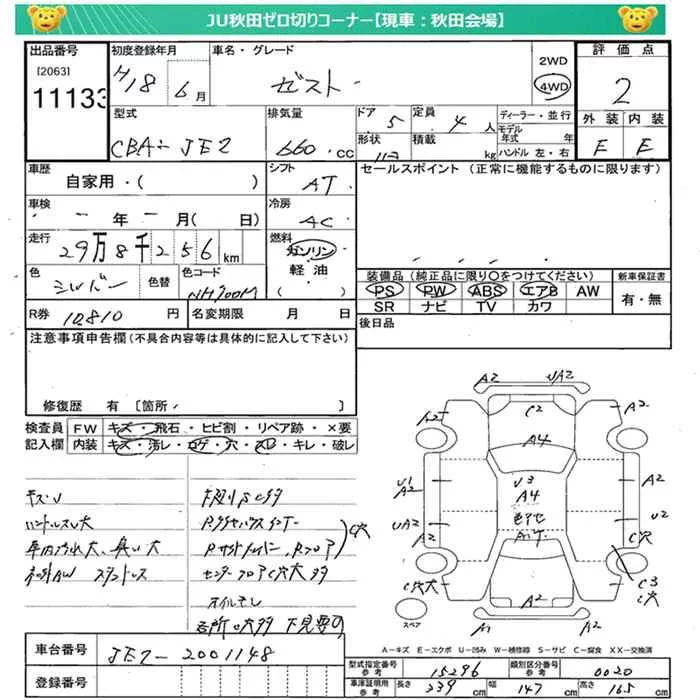 JU秋田ゼロ切りコーナー【現車：秋田会場】
出品番号
[2063]
11133
初度登録年月
H18 6月
車名・グレード
ゼスト
2WD
4WD
評価点
2
外装 内装
E E
型式
CBA-JE2
排気量
660 cc
ドア 5
定員 4 人
形状
積載 kg
ディーラー・並行
モデル年式 年
ハンドル 左・右
車歴
自家用・( )
シフト
AT
車検
年 月( 日)
冷房
AC
走行
29万8千256 km
燃料
ガソリン
軽油
( )
色
シルバー
色替
色コード
NH700M
セールスポイント（正常に機能するものに限ります）
装備品（純正品に限り○をつけてください）
PS PW ABS エアB AW
SR ナビ TV カワ
新車保証書
有・無
R券 10810 円
名変期限 月 日
後日品
注意事項申告欄（不具合内容等は具体的に記入して下さい）
修復歴 有〔箇所 〕
検査員記入欄
FW キズ・飛石・ヒビ割・リペア跡・×要
内装 キズ・汚レ・コゲ・穴・スレ・キレ・破レ
キズU
ハンドルスレ大
車内汚れ大、臭い大
社外AW スタッドレス
下廻りSC多
センターフロアC穴大多
オイルモレ
各所凹多 下見要ス
C穴
A2 UA2
C2
A2 A2
A4
U1
A2
U3
A4
色アセ
A2
UA2
U2
C穴
C穴大
C3
C穴
A2
A1 A2
スペア
A－キズ E－エクボ U－凹み W－補修線 S－サビ C－腐食 XX－交換済
車台番号
JE2-2001148
登録番号
型式指定番号 参考 15296
類別区分番号 参考 0020
車庫証明用 参考 長さ 339 cm 幅 147 cm 高さ 165 cm